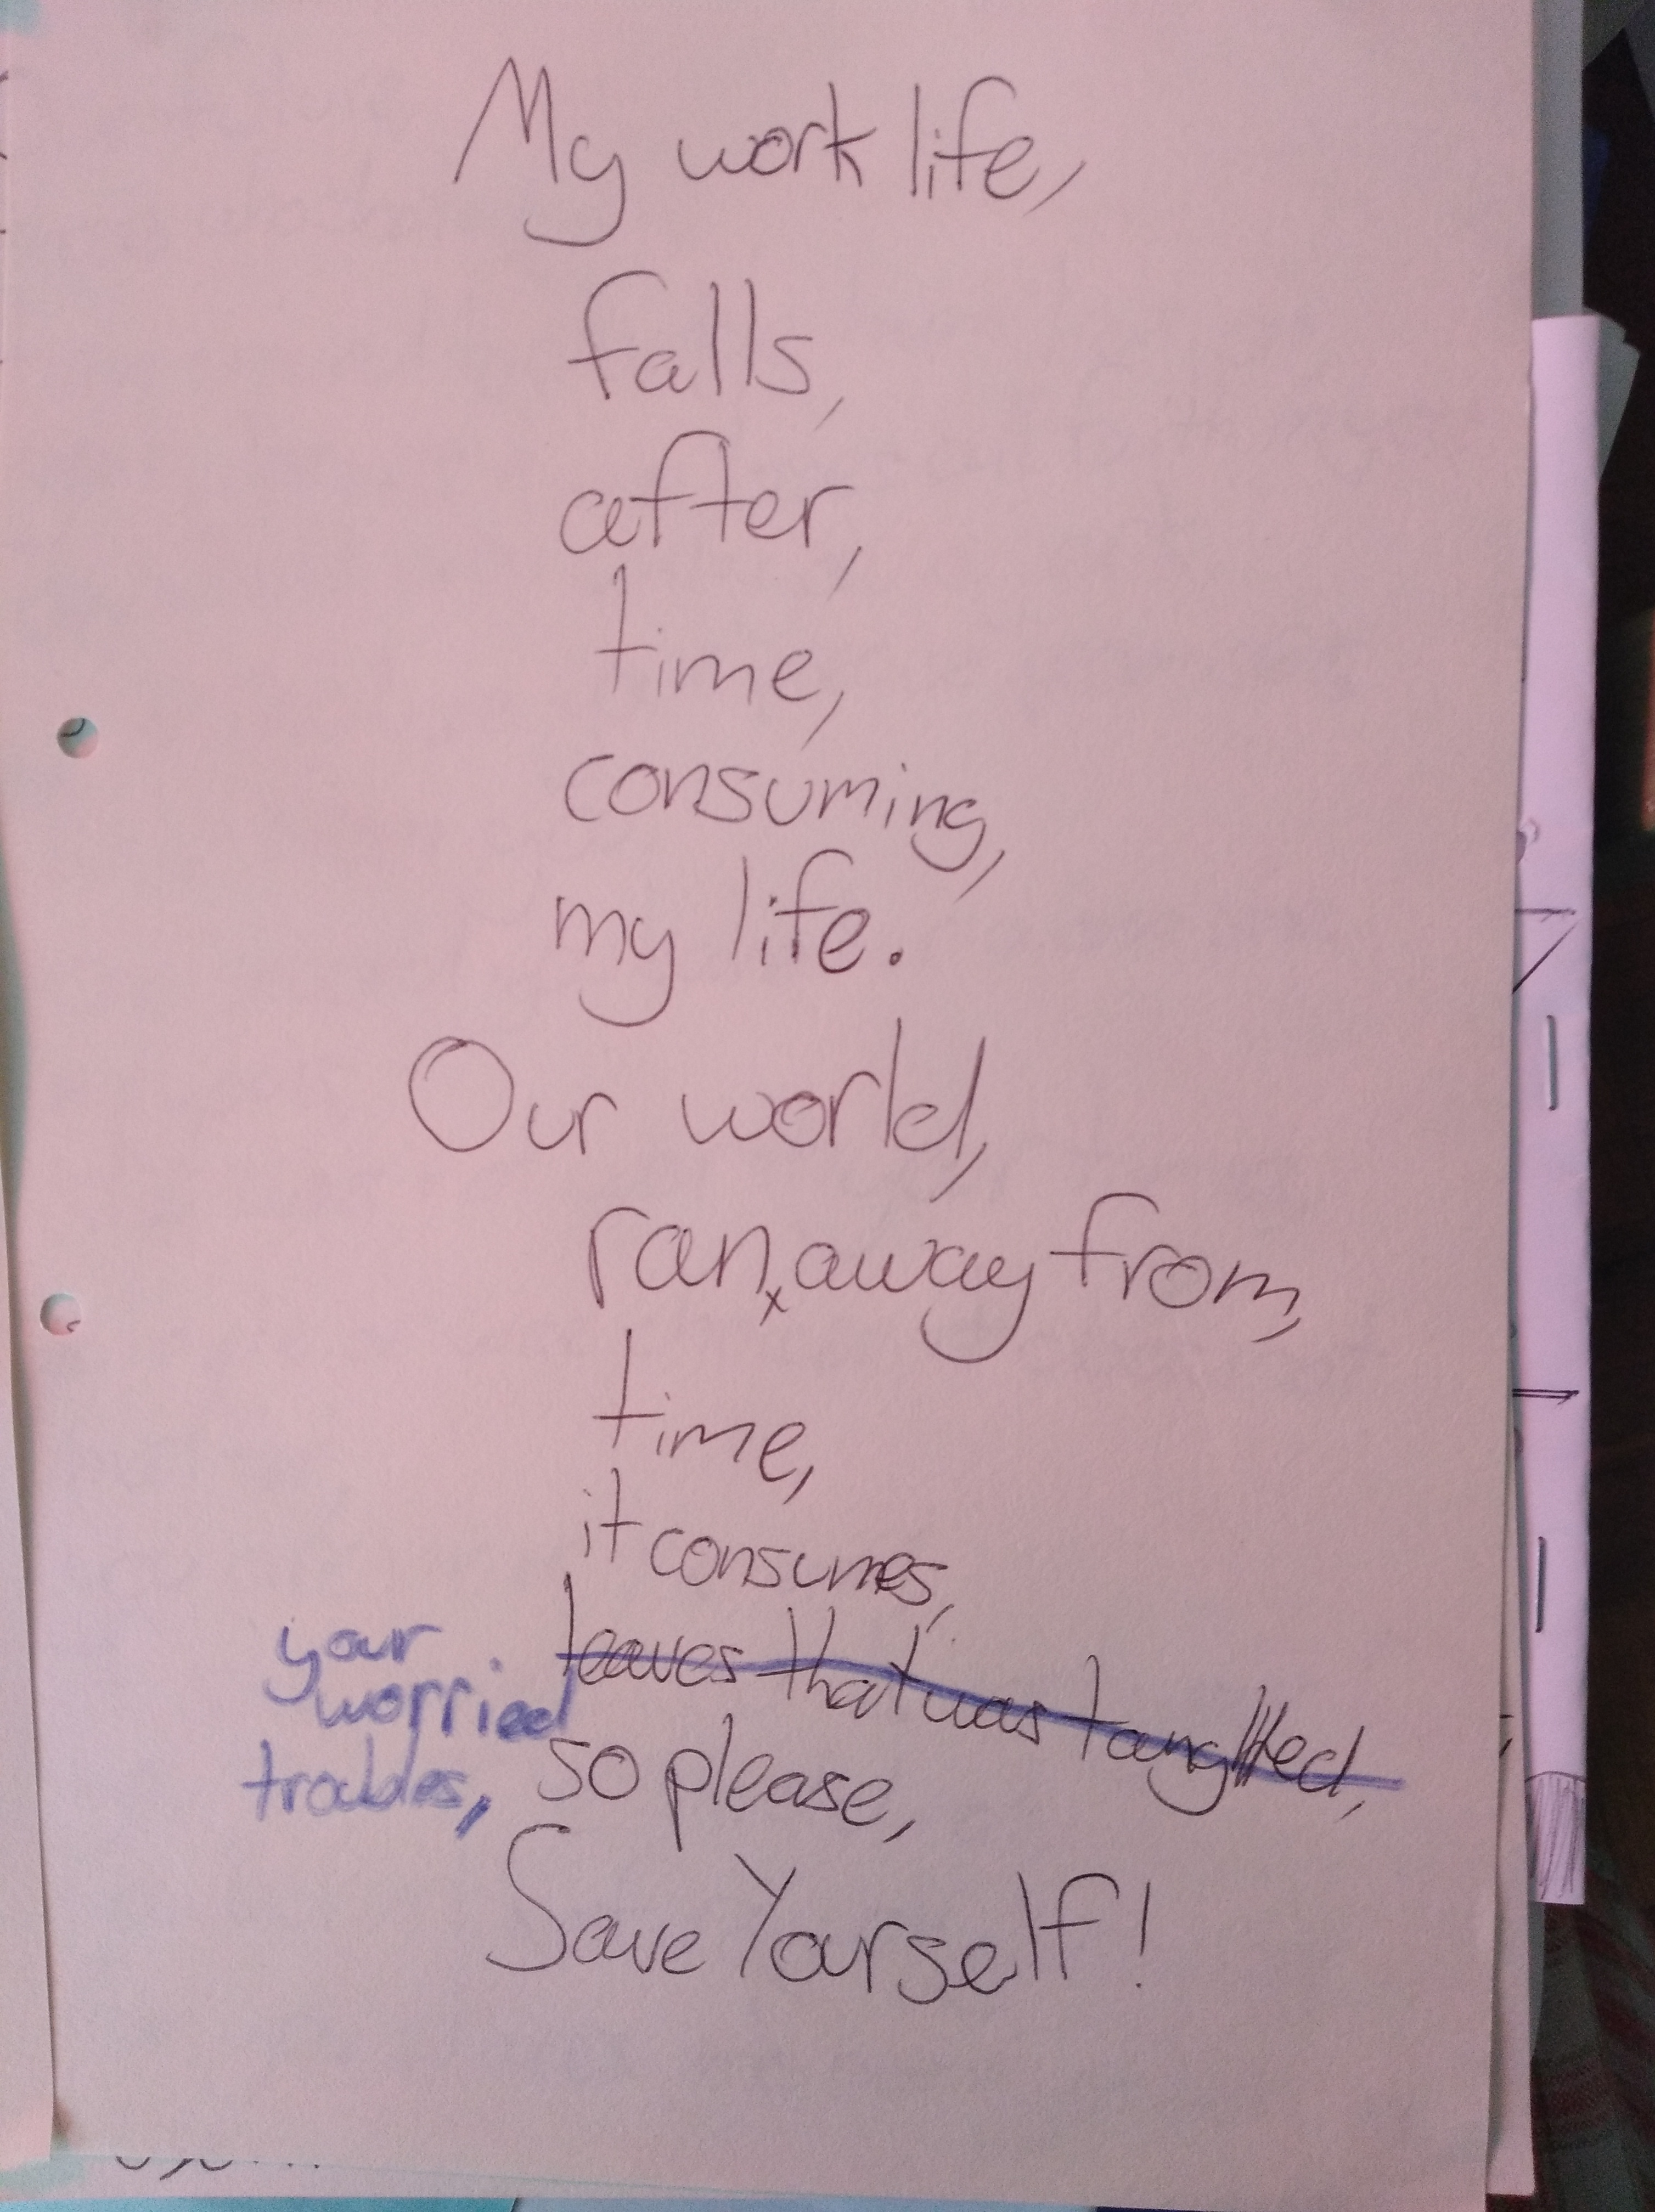 My work life,
falls,
after,
time,
consuming,
my life.
Our world,
ran, away from,
time,
it consumes,
leaves that was tanglled,
your
worried
troubles,
so please,
Save Yourself!